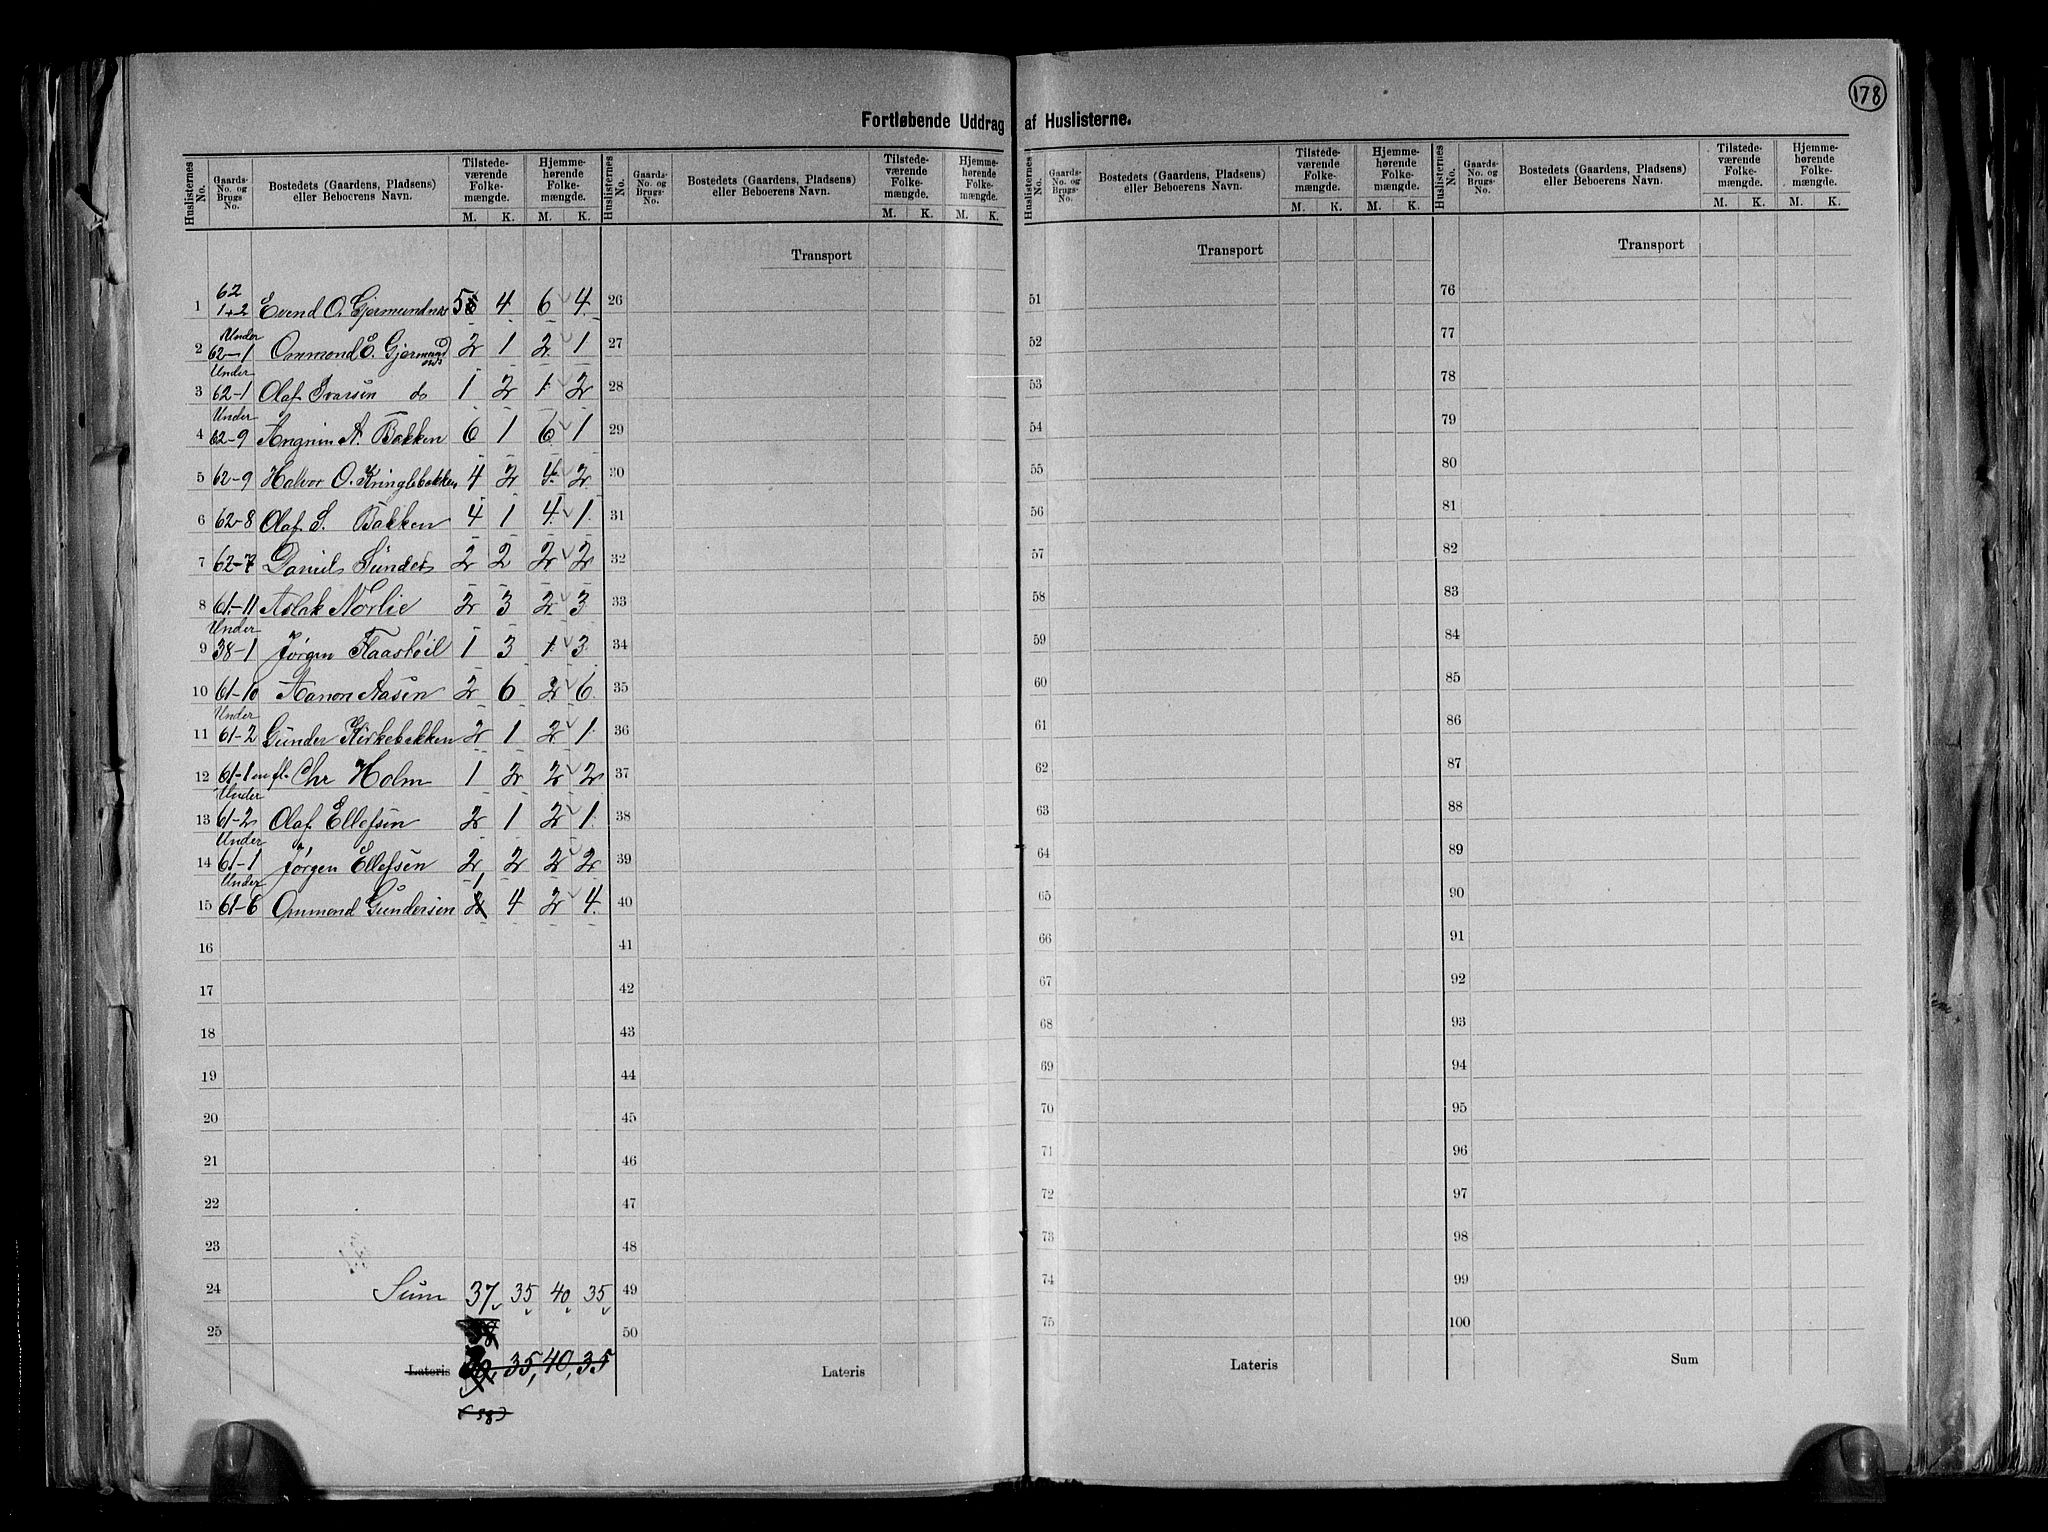 178
Fortløbende Uddrag af Huslisterne.
Huslisternes No. | Gaards-No. og Brugs-No. | Bostedets (Gaardens, Pladsens) eller Beboerens Navn. | Tilstedeværende Folkemængde. M. K. | Hjemmehørende Folkemængde. M. K.
Huslisternes No. | Gaards-No. og Brugs-No. | Bostedets (Gaardens, Pladsens) eller Beboerens Navn. | Tilstedeværende Folkemængde. M. K. | Hjemmehørende Folkemængde. M. K.
Huslisternes No. | Gaards-No. og Brugs-No. | Bostedets (Gaardens, Pladsens) eller Beboerens Navn. | Tilstedeværende Folkemængde. M. K. | Hjemmehørende Folkemængde. M. K.
Huslisternes No. | Gaards-No. og Brugs-No. | Bostedets (Gaardens, Pladsens) eller Beboerens Navn. | Tilstedeværende Folkemængde. M. K. | Hjemmehørende Folkemængde. M. K.
1 62 1+2 Evend O. Gjermundnæs 5 4 6 4
2 Under 62-1 Ommond E. 2 1 2 1
3 Under 62-1 Olaf Ivarsen do 1 2 1 2
4 Under 62-9 Arngrim A. Bakken 6 1 6 1
5 62-9 Halvor O. Kringlebakken 4 2 4 2
6 62-8 Olaf S. Bakken 4 1 4 1
7 62-7 Daniel Sundet 2 2 2 2
8 61-11 Aslak Norlie 2 3 2 3
9 Under 38-1 Jørgen Flaastøil 1 3 1 3
10 61-10 Aanon Aasen 2 6 2 6
11 Under 61-2 Gunder Kirkebakken 2 1 2 1
12 61-1 m fl. Chr Holm 1 2 2 2
13 Under 61-2 Olaf Ellefsen 2 1 2 1
14 Under 61-1 Jørgen Ellefsen 2 2 2 2
15 Under 61-6 Ommond Gundersen 1 4 2 4
16
17
18
19
20
21
22
23
24 Sum 37 35 40 35
25
Lateris 35, 40, 35
(38)
Transport
26
27
28
29
30
31
32
33
34
35
36
37
38
39
40
41
42
43
44
45
46
47
48
49
50
Lateris
Transport
51
52
53
54
55
56
57
58
59
60
61
62
63
64
65
66
67
68
69
70
71
72
73
74
75
Lateris
Transport
76
77
78
79
80
81
82
83
84
85
86
87
88
89
90
91
92
93
94
95
96
97
98
99
100
Sum